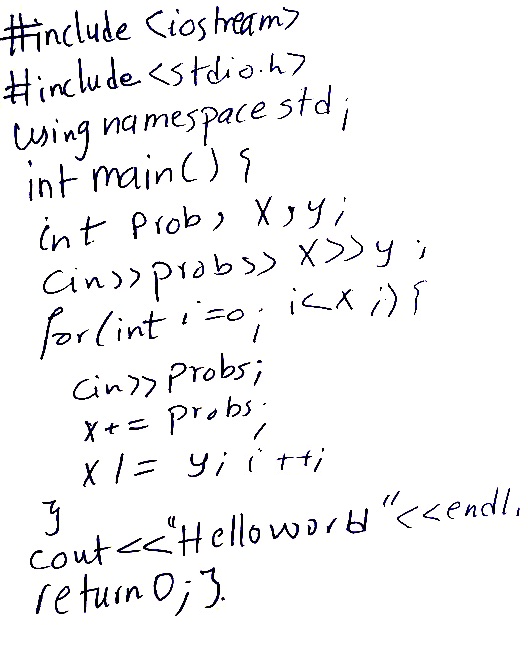 #include <iostream>
#include <stdio.h>
using namespace std;
int main() {
int Prob, X, y;
cin>>probs>> X>>y ;
for(int i=0; i<X ;) {
cin>> Probs;
X += Probs;
X /= y; i ++;
}
cout<<"Hello world"<<endl.
return 0; }.